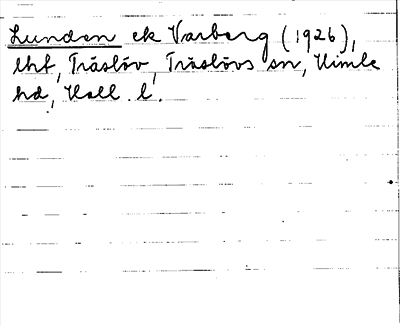 Lunden ek Varberg (1926),
lht, Träslöv, Träslövs sn, Himle
hd, Hall. l.